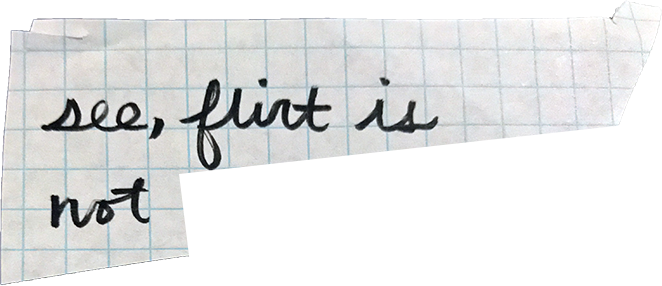 see, flirt is
not